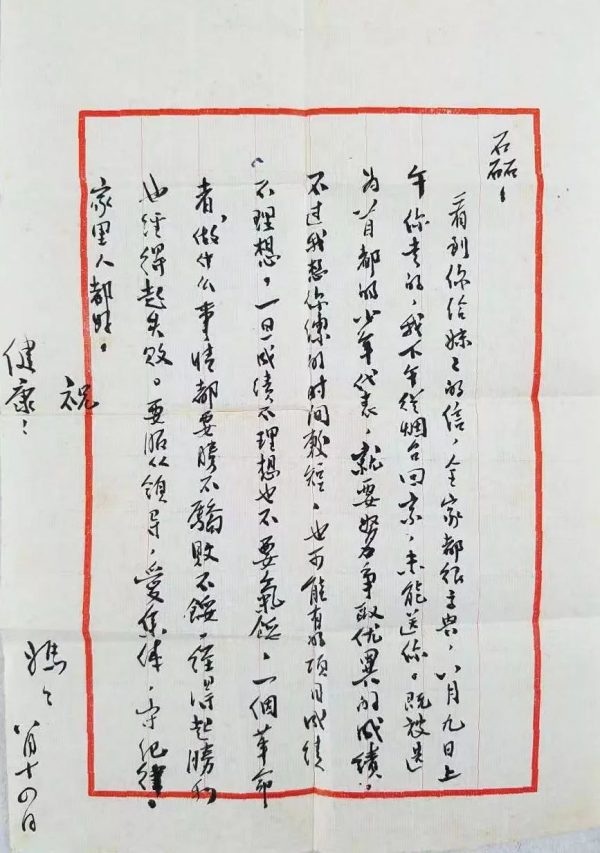 石磊：
看到你给妹妹的信，全家都很高兴，八月九日上
午你走的，我下午从烟台回京，未能送你。既被选
为首都的少年代表，就要努力争取优异的成绩，
不过我想你练的时间较短，也可能有的项目成绩
不理想，一旦成绩不理想也不要氣餒。一個革命
者，做什么事情都要勝不驕敗不餒，經得起勝利
也经得起失败。要服从領导，愛集体，守纪律。
家里人都好。
祝
健康！
八月十四日